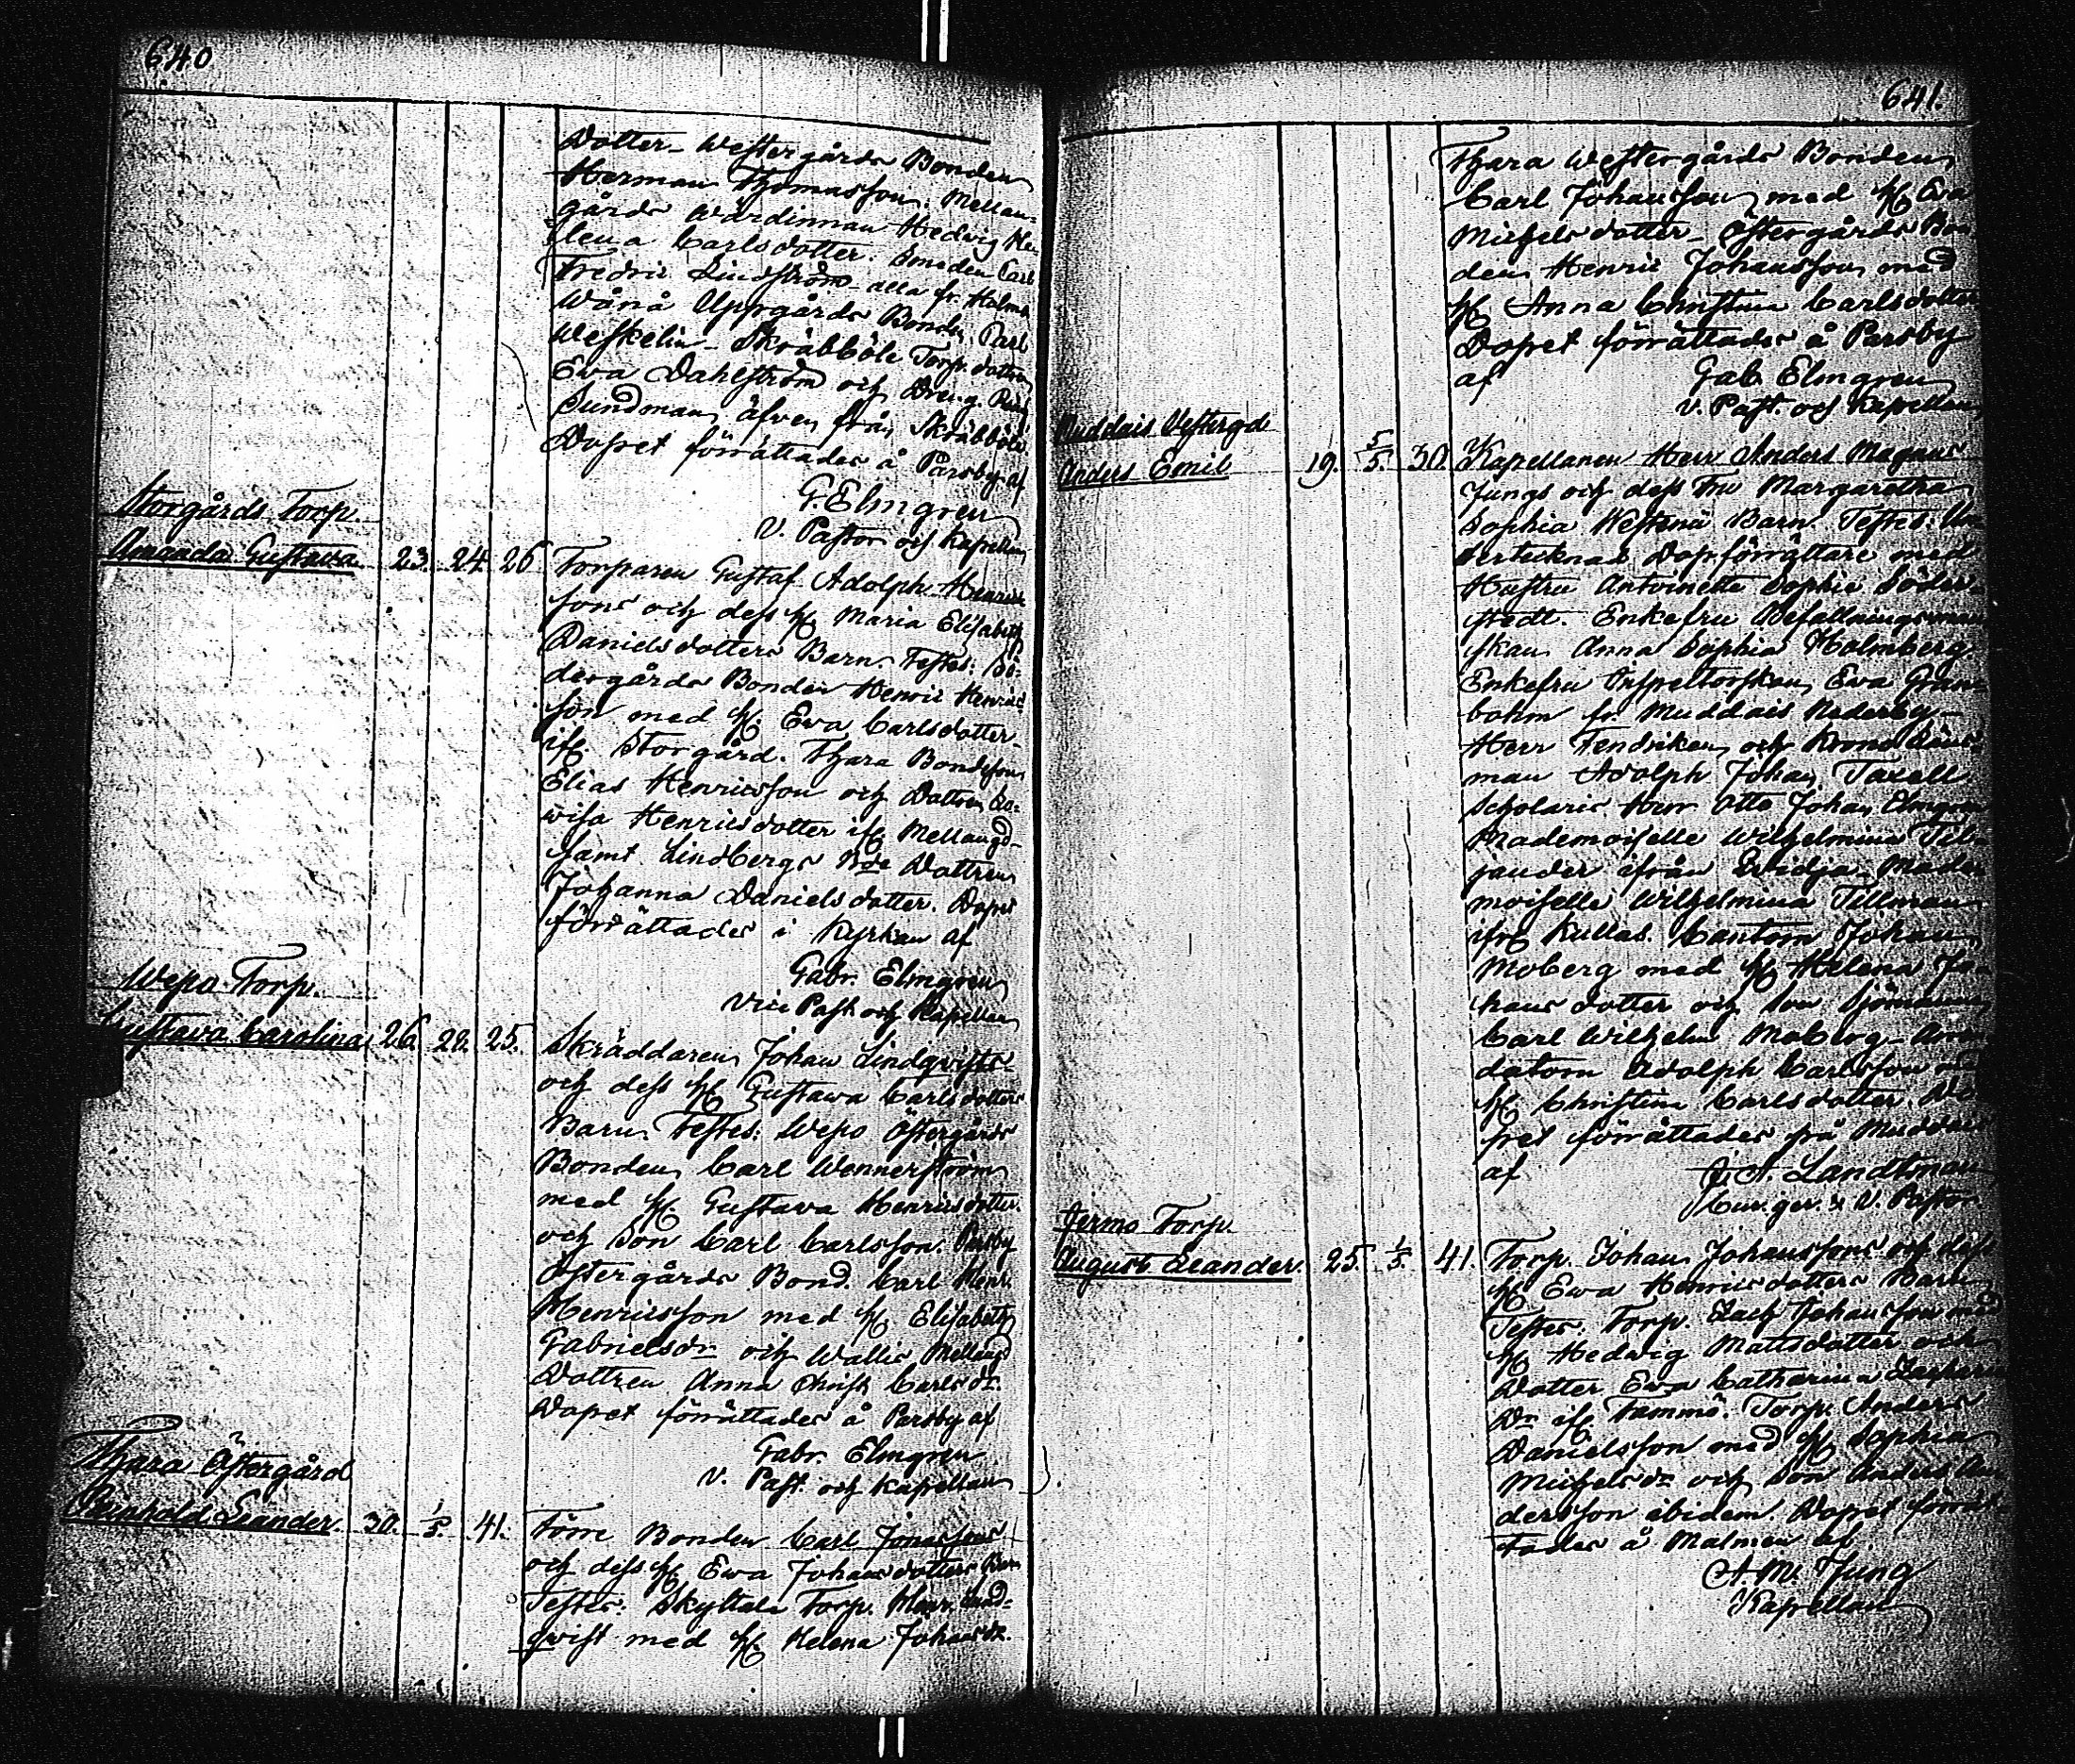 640
Dotter- Westergårds Bonden
Herman Thomasson. Mellan-
gårds Wärdinnan Hedvig He-
lena Carlsdotter. Smeden Carl
Fredric Lindström- alla fr. Holma
Wånå Uppgårds Bonden Carl
Weskelin- Skräbböle Torp. dottren
Ewa Dahlström och Dreng.
Sundman, äfven från Skräbböle
Dopet förrättades å Parsby af
G. Elmgren
V. Pastor och Kapellan
Storgårds Torp.
Amanda Gustava 23. 24. 26 Torparen Gustaf Adolph Henric
sons och dess H. Maria Elisabeth
Danielsdotters Barn. Testes: Sö-
dergårds Bonden Henric Henrics
son med H. Eva Carlsdotter-
ifr. Storgård. Thara Bondeson
Elias Henricsson och Dottren Lo-
wisa Henricsdotter ifr. Mellangd-
samt Lindbergs Dottren
Johanna Danielsdotter. Dopet
förrättades i Kyrkan af
Gabr. Elmgren
Vice Past. och Kapellan
Wepo Torp.
Gustava Carolina 26. 28. 25. Skräddaren Johan Lindqvists
och dess H. Gustawa Carlsdotters
Barn. Testes: Wepo Östergårds
Bonden Carl Wennerström
med H. Gustava Henricsdotter
och Son Carl Carlsson. Parsby
Östergårds Bond. Carl Henr.
Henricsson med H. Elisabeth
Gabrielsdr och Wallis Mellangd
Dottren Anna Christ. Carlsdr.
Dopet förrättades å Parsby af
Gabr. Elmgren
V. Past. och Kapellan
Thara Östergård
Reinhold Leander. 30. 1/5. 41. Förre Bonden Carl Jonassons
och dess H. Ewa Johansdotters Barn
Testes: Skyttala Torp. Henr. Lind-
qvist med H. Helena Johansdr.
641.
Thara Westergårds Bonden
Carl Johansson med H. Eva
Michelsdotter- Östergårds Bon
den Henric Johansson med
H. Anna Christina Carlsdotter
Dopet förrättades å Parsby
af Gab. Elmgren
V. Past. och Kapellan
Muddais Vestergd
Anders Emil 19. 5/5. 30. Kapellanen Herr Anders Magnus
Jungs och dess Fru Margaretha
Sophia Westenii Barn. Testes: Un
dertecknad Dopförrättare med
Hustru Antoinette Sophie Söder-
stedt. Enkefru Befallningsman
skan Anna Sophia Holmberg
Enkefru Inspektorskan Eva Gran-
bohm fr. Muddais Nederby-
Herr Fendriken och Krono Läns-
man Adolph Johan Taxell
Scholaris Herr Otto Johan Elmgren
Mademoiselle Wilhelmina Til-
jander ifrån Qvidja, Made-
moiselle Wilhelmina Tillman
ifrå Kullas. Cantorn Johan
Moberg med H. Helena Jo-
hans dotter och Son Sjöman
Carl Wilhelm Moberg- Arren
datorn Adolph Carlsson med
H. Christina Carlsdotter. Do
pet förrättades på Muddais
af J. A. Landtman
Cur. ger. & V. Pastor
Jermo Torp.
August Leander. 25. 1/5. 41. Torp. Johan Johanssons och dess
H. Ewa Henricsdotters Barn
Testes. Torp. Zach. Johansson med
H. Hedwig Mattsdotter och
Dotter Ewa Catharina Zachari
Dr ifr. Tammo. Torp. Anders
Danielsson med H. Sophia
Michelsdr och Son Anders An
dersson ibidem. Dopet förrät-
tades å Malmen af
A. M. Jung
Kapellan